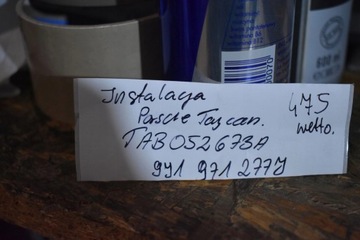 Instalacja
Porsche Taycan.
TAB052673A
9Y1 971 277J
475
netto.